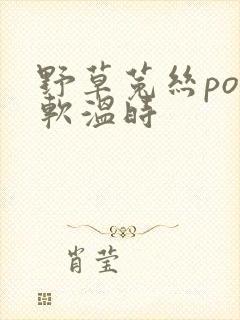 野草菟丝po
軟溫時
肖莹